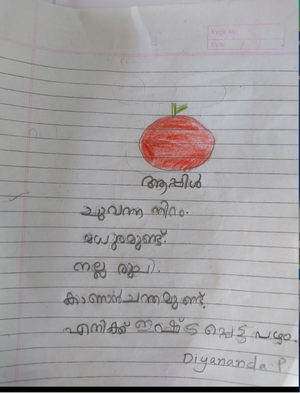 Page No.
Date
ആപ്പിൾ
ചുവന്ന നിറം.
മധുരമുണ്ട്.
നല്ല രുചി.
കാണാൻ ചന്തമുണ്ട്.
എനിക്ക് ഇഷ്ടപ്പെട്ട പഴം.
Diyananda.P